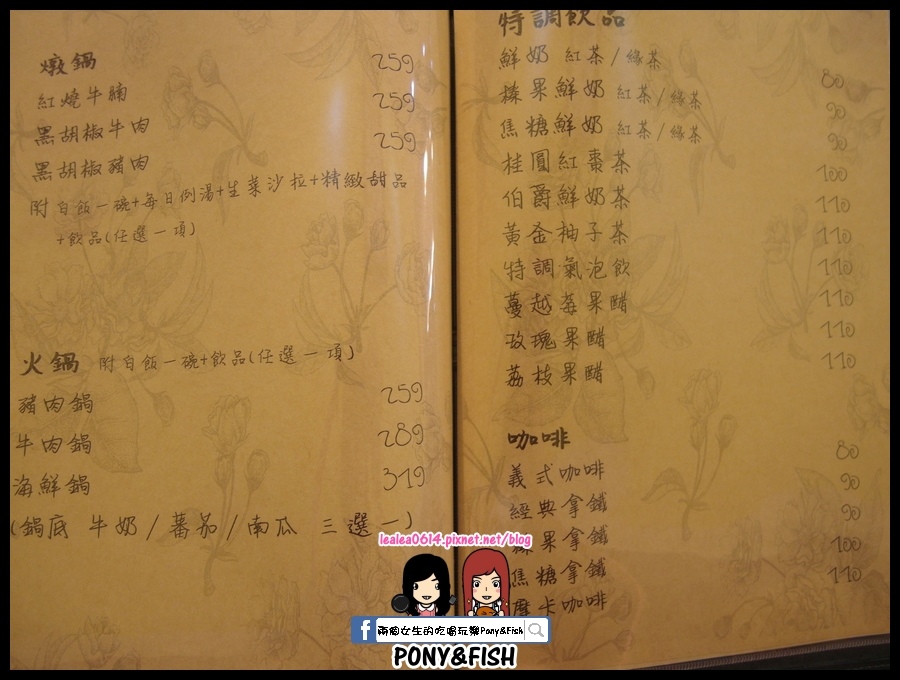 燉鍋
紅燒牛腩 259
黑胡椒牛肉 259
黑胡椒豬肉 259
附白飯一碗+每日例湯+生菜沙拉+精緻甜品
+飲品(任選一項)
火鍋 附白飯一碗+飲品(任選一項)
豬肉鍋 259
牛肉鍋 289
海鮮鍋 319
(鍋底 牛奶/蕃茄/南瓜 三選一)
特調飲品
鮮奶 紅茶/綠茶 80
榛果鮮奶 紅茶/綠茶 90
焦糖鮮奶 紅茶/綠茶 90
桂圓紅棗茶 100
伯爵鮮奶茶 110
黃金柚子茶 110
特調氣泡飲 110
蔓越莓果醋 110
玫瑰果醋 110
荔枝果醋 110
咖啡
義式咖啡 80
經典拿鐵 90
榛果拿鐵 90
焦糖拿鐵 100
摩卡咖啡 110
lealea0614.pixnet.net/blog
f 兩個女生的吃喝玩樂Pony&Fish
PONY&FISH